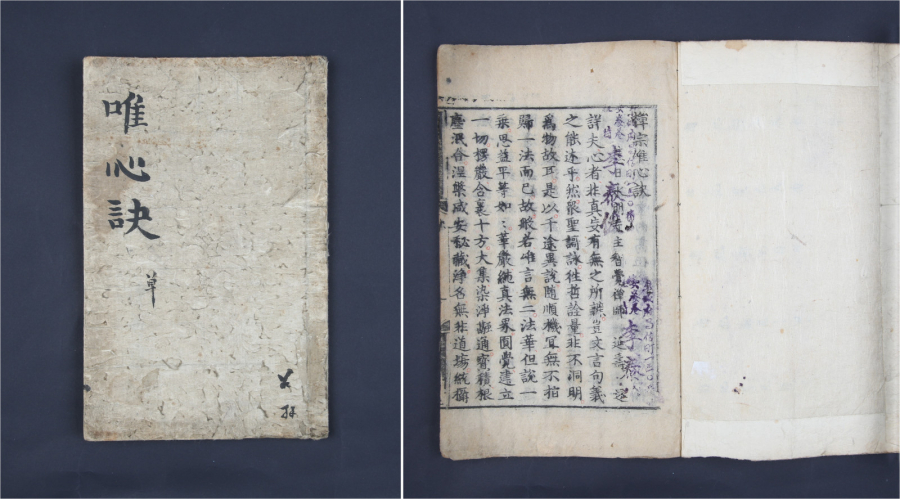 唯心訣
單
禪宗唯心訣
主智覺禪師 延壽 述
詳夫心者非真妄有無之所辨豈文言句義
之能述乎然眾聖謌詠往哲詮量非不洞明
為物故耳是以千途異說随順機冝無不指
歸一法而已故般若唯言無二法華但說一
乘思益平等如:華嚴純真法界圓覺建立
一切楞嚴含裹十方大集染淨融通寳積根
塵泯合涅槃咸安秘藏淨名無非道場統攝